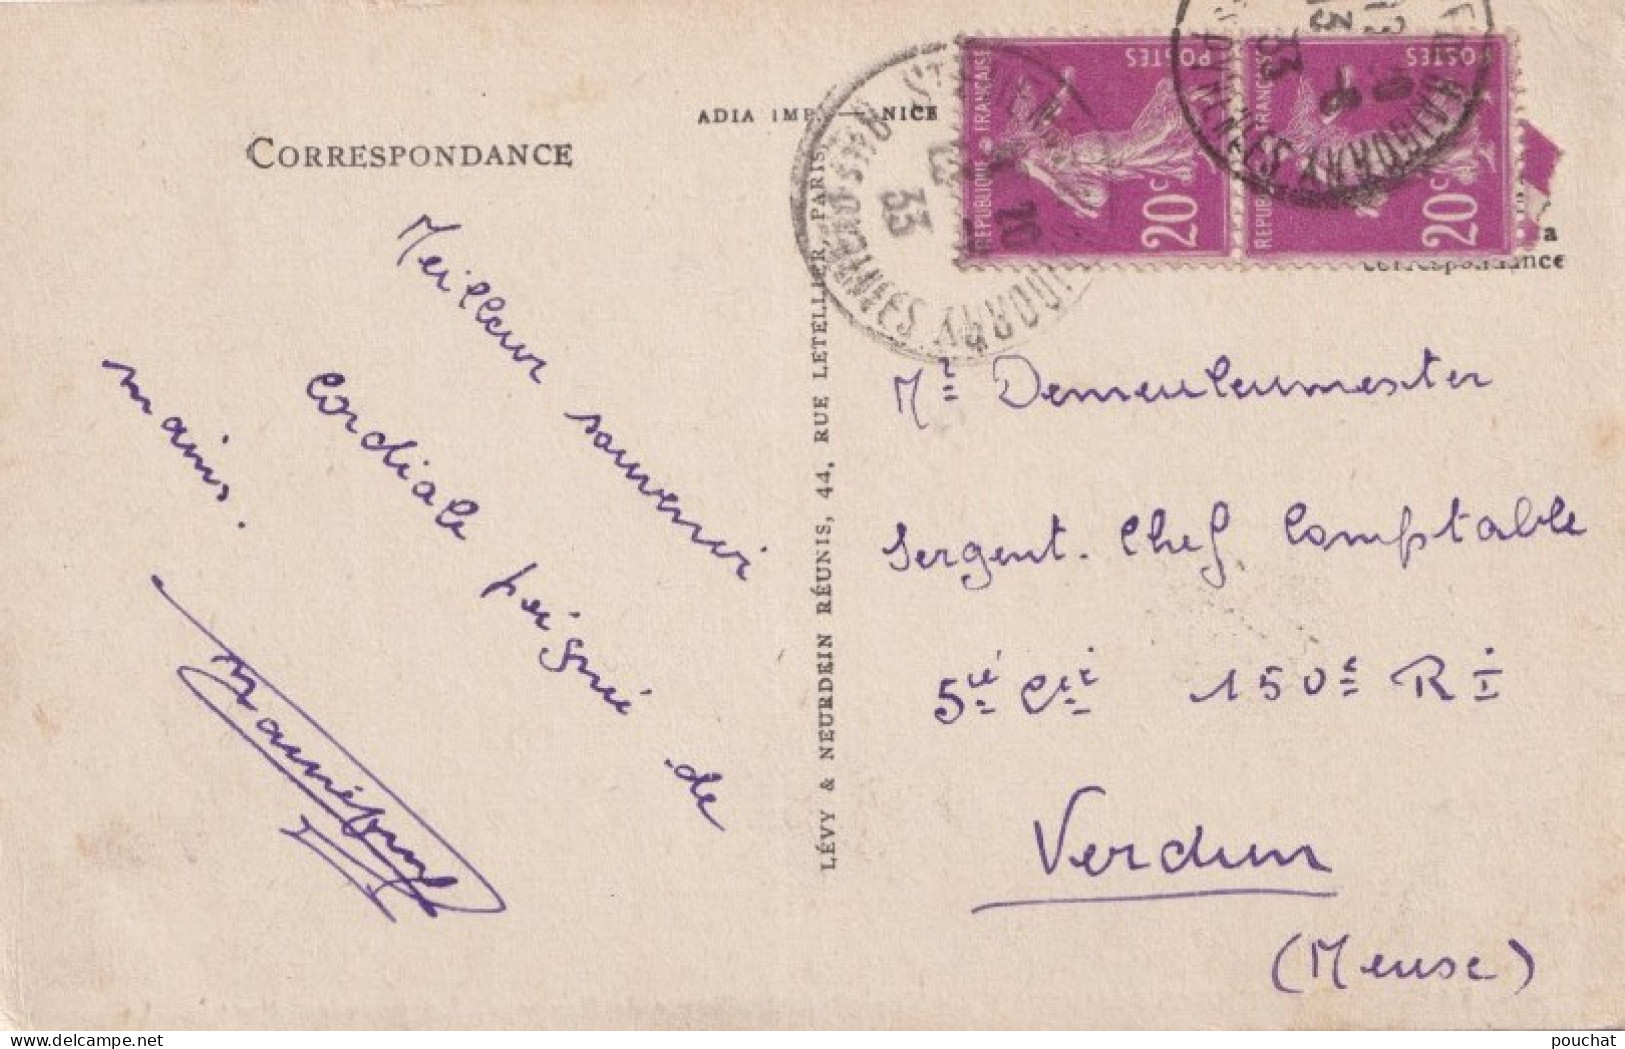 CORRESPONDANCE
ADIA IMP. — NICE
Meilleur souvenir
Cordiale poignée de
mains.
LÉVY & NEURDEIN RÉUNIS, 44, RUE LETELLIER, PARIS
REPUBLIQUE FRANÇAISE
POSTES
20c
REPUBLIQUE FRANÇAISE
POSTES
20c
33
33
a
correspondance
Mr Demeulemester
Sergent-Chef Comptable
5ie Cie 150e RI
Verdun
(Meuse)
www.delcampe.net
pouchat